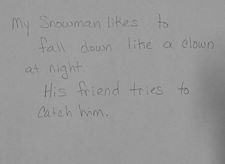 My Snowman likes to
fall down like a clown
at night.
His friend tries to
Catch him.